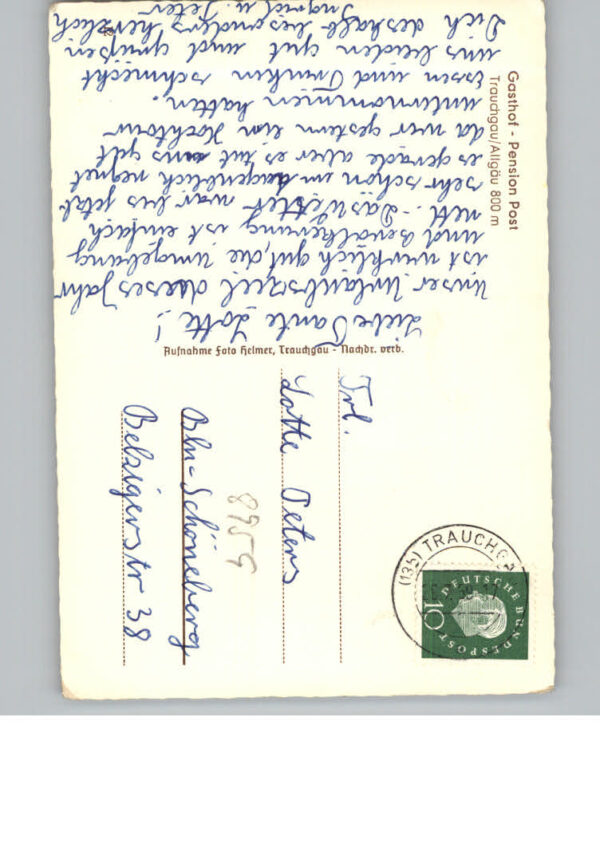 Gasthof - Pension Post
Trauchgau/Allgäu 800 m
Liebe Tante Lotte!
Unser Urlaubsziel dieses Jahr
ist wirklich gut, die Umgebung
und Bevölkerung ist einfach
nett. - Das Wetter war bis jetzt
sehr schön im Augenblick regnet
es gerade aber es tut uns gut
da wir gestern eine Hochtour
unternommen hatten.
Essen und Trinken schmeckt
uns beiden gut und grüßen
Dich deshalb besonders herzlich
Ingrid u. Peter
Aufnahme Foto Helmer, Trauchgau - Nachdr. verb.
Frl.
Lotte Peters
Bln-Schöneberg
Belzigerstr 38
8955
(13b) TRAUCHG
DEUTSCHE BUNDESPOST
10